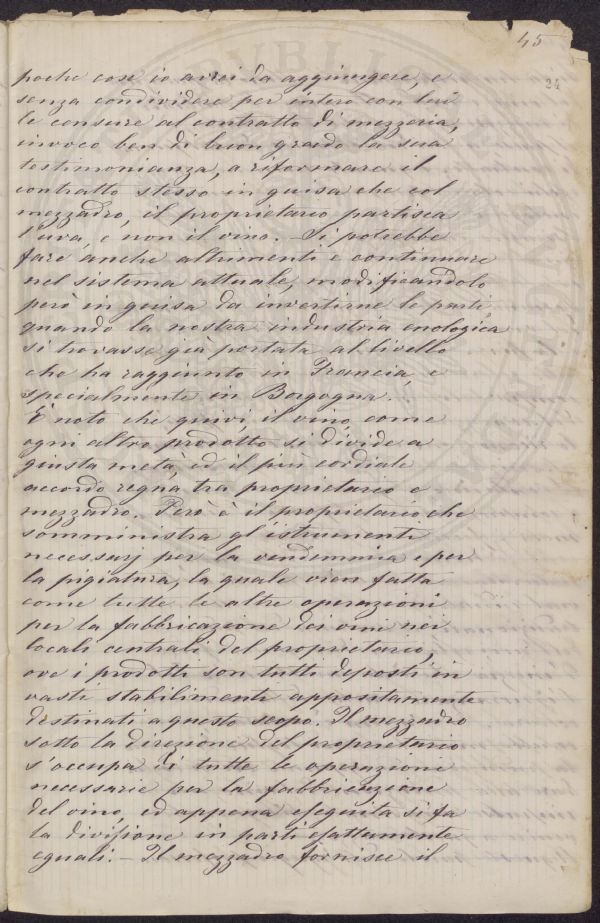 45
24
poche cose io avrei da aggiungere, e
senza condividere per intero con lui
le censure al contratto di mezzeria,
invoco ben di buon grado la sua
testimonianza, a riformare il
contratto stesso in guisa che col
mezzadro, il proprietario partisca
l'uva, e non il vino. – Si potrebbe
fare anche altrimenti e continuare
nel sistema attuale, modificandolo
però in guisa da invertirne le parti,
quando la nostra industria enologica
si trovasse già portata al livello
che ha raggiunto in Francia, e
specialmente in Borgogna.
È noto che quivi, il vino come
ogni altro prodotto si divide a
giusta metà, ed il più cordiale
accordo regna tra proprietario e
mezzadro. Però è il proprietario che
somministra gl'istrumenti
necessarj per la vendemmia e per
la pigiatura, la quale vien fatta
come tutte le altre operazioni
per la fabbricazione dei vini nei
locali centrali del proprietario,
ove i prodotti son tutti deposti in
vasti stabilimenti appositamente
destinati a questo scopo. Il mezzadro
sotto la direzione del proprietario
s'occupa di tutte le operazioni
necessarie per la fabbricazione
del vino, ed appena eseguita si fa
la divisione in parti esattamente
eguali. – Il mezzadro fornisce il